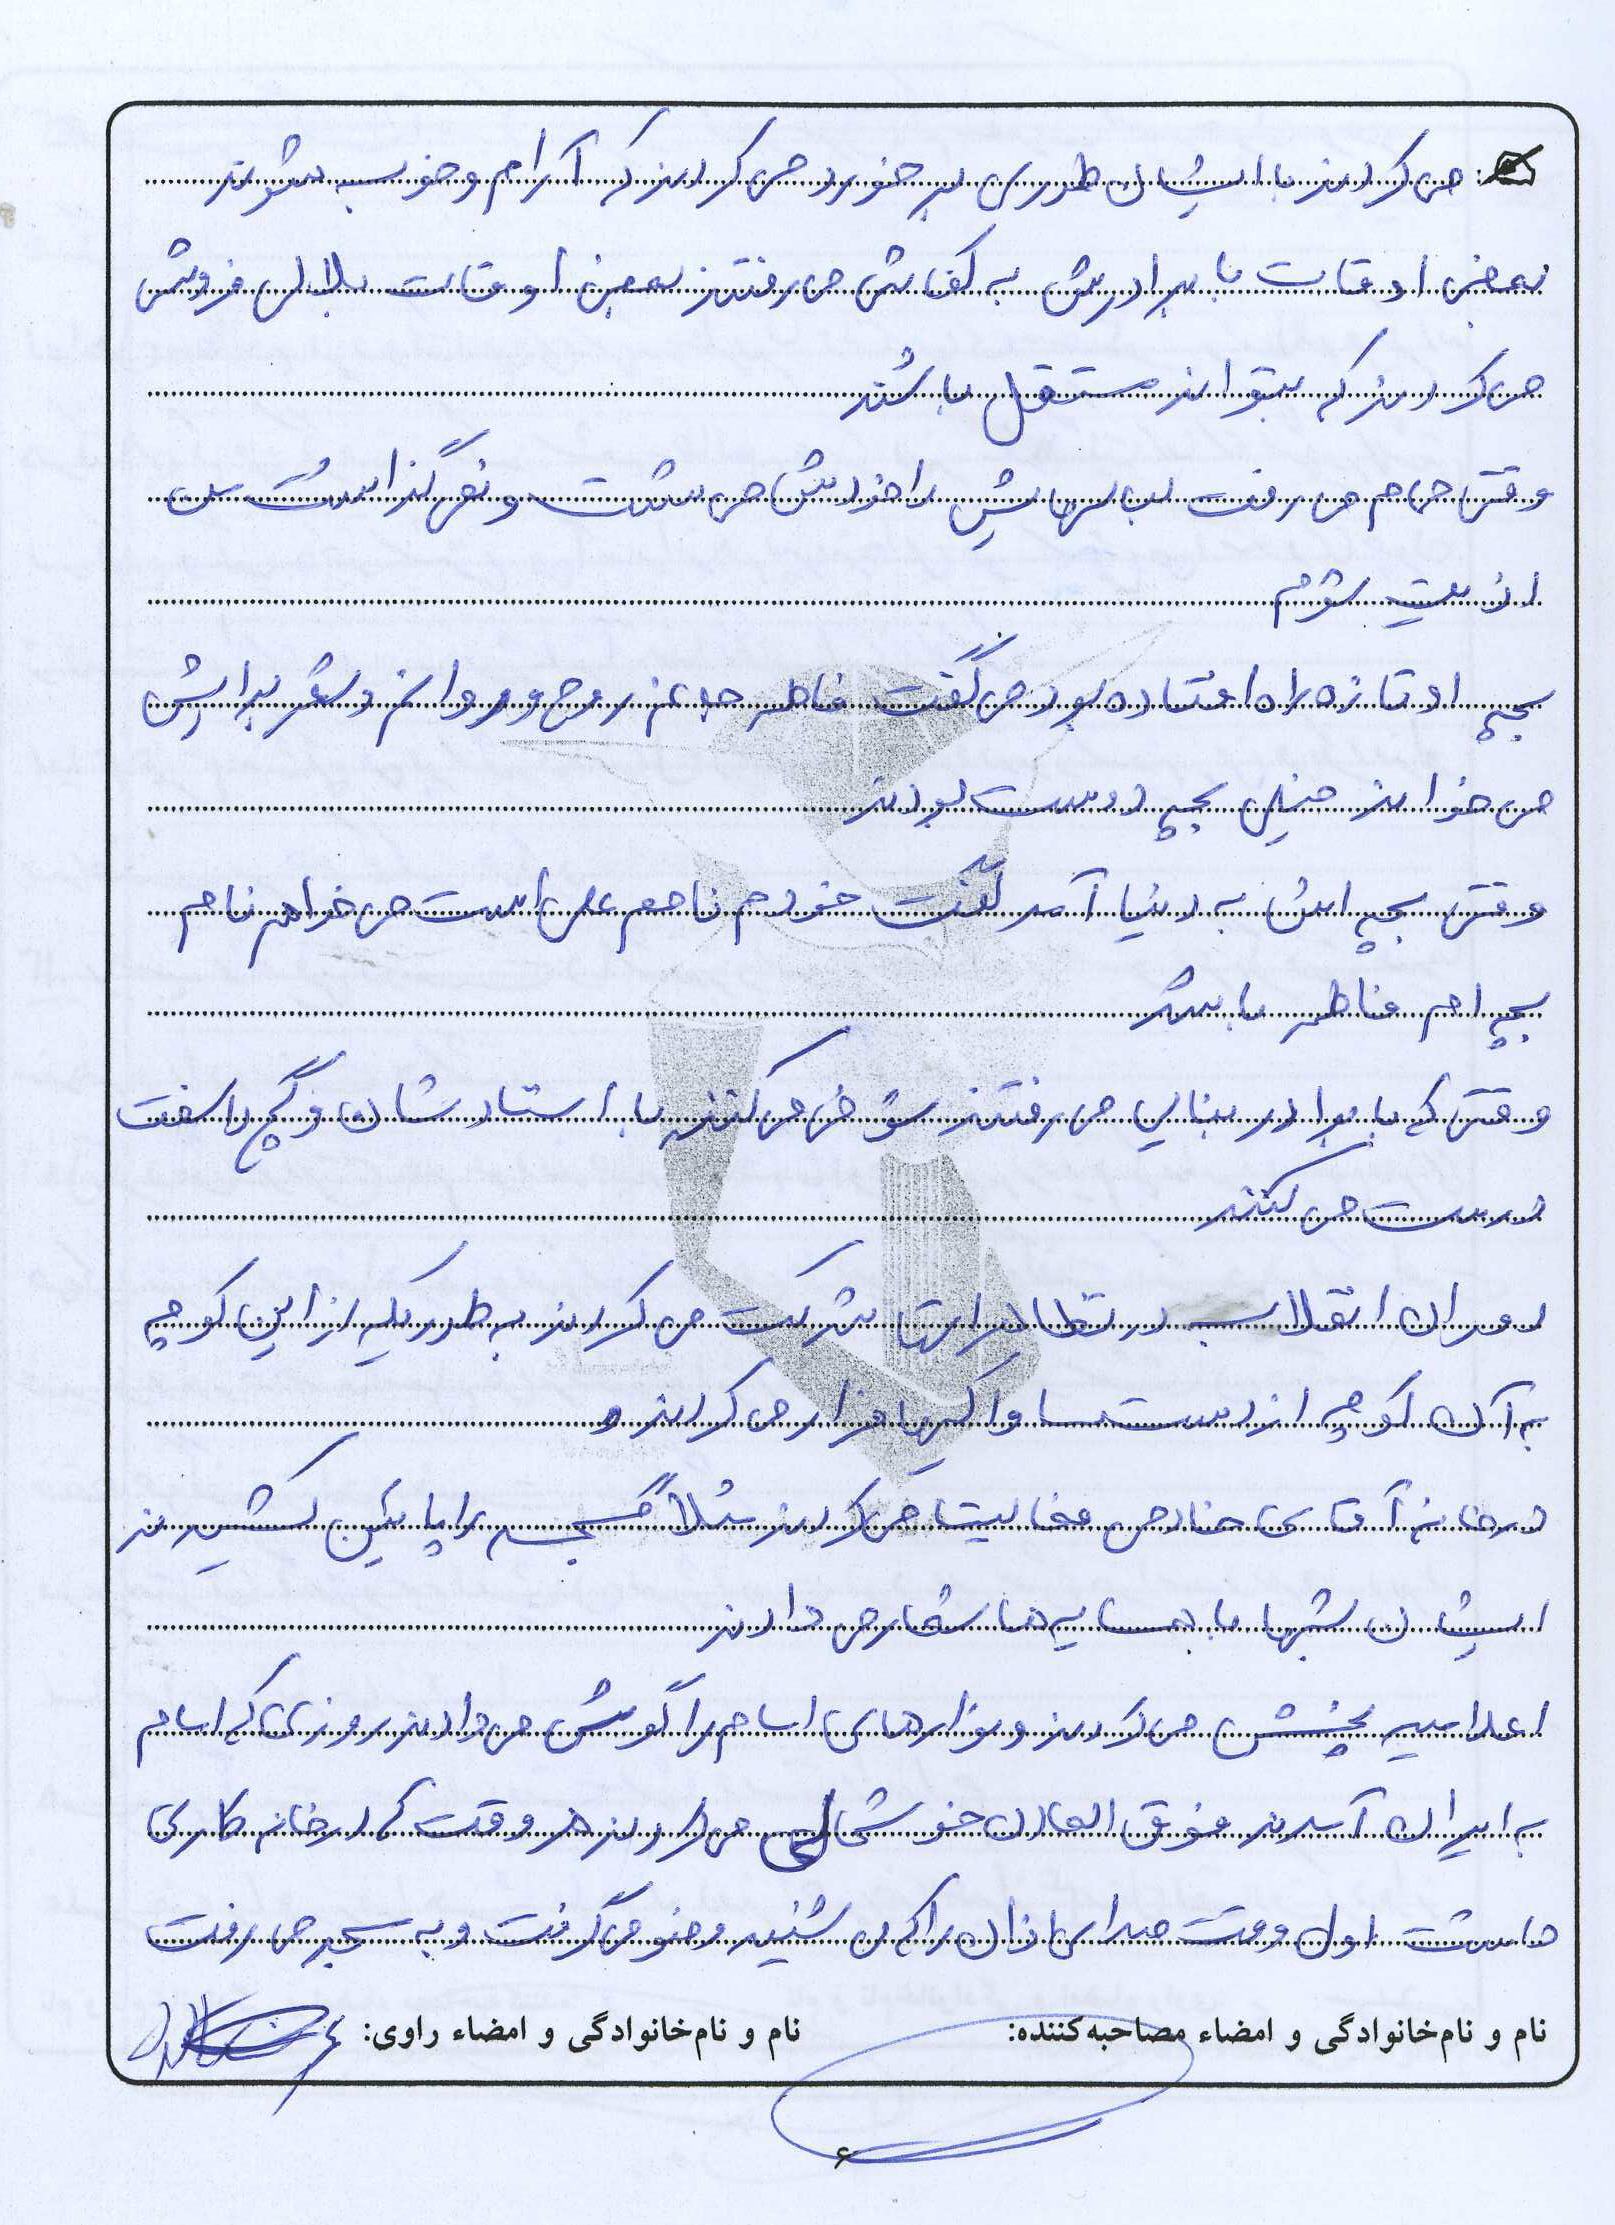 می کردند با ایشان طوری برخورد می کردند که آرام و خوب بشوند
بعضی اوقات با برادرش به کفاشی می رفتند بعضی اوقات بلال فروشی
می کردند که بتوانند مستقل باشند
وقتی حمام می رفت لباسهایش را خودش می شست و نمی گذاشت من
اذیت شوم
بچه او تازه راه افتاده بود می گفت فاطمه روح و روانم و شعر برایش
می خواند خیلی بچه دوست بودند
وقتی بچه اش به دنیا آمد گفت خودم نامم علی است می خواهم نام
بچه ام فاطمه باشد
وقتی که با برادر بنایی می رفتند شوخی می کنند با استادشان و گچ را سفت
درست می کنند
دوران انقلاب در تظاهراتها شرکت می کردند به طوریکه از این کوچه
به آن کوچه از دست ساواکیها فرار می کردند و
در خانه آقای فعالیت می کردند مثلاً مجسمه را پائین کشیدند
ایشان شبها با همسایه ها شعار می دادند
اعلامیه پخش می کردند و نوارهای امام را گوش می دادند روزی که امام
به ایران آمدند فوق العاده خوشحالی می کردند هر وقت که در خانه کاری
داشت اول وقت صدای اذان را که می شنید وضو می گرفت و به مسجد می رفت
نام و نام‌خانوادگی و امضاء مصاحبه‌کننده: نام و نام‌خانوادگی و امضاء راوی:
۶